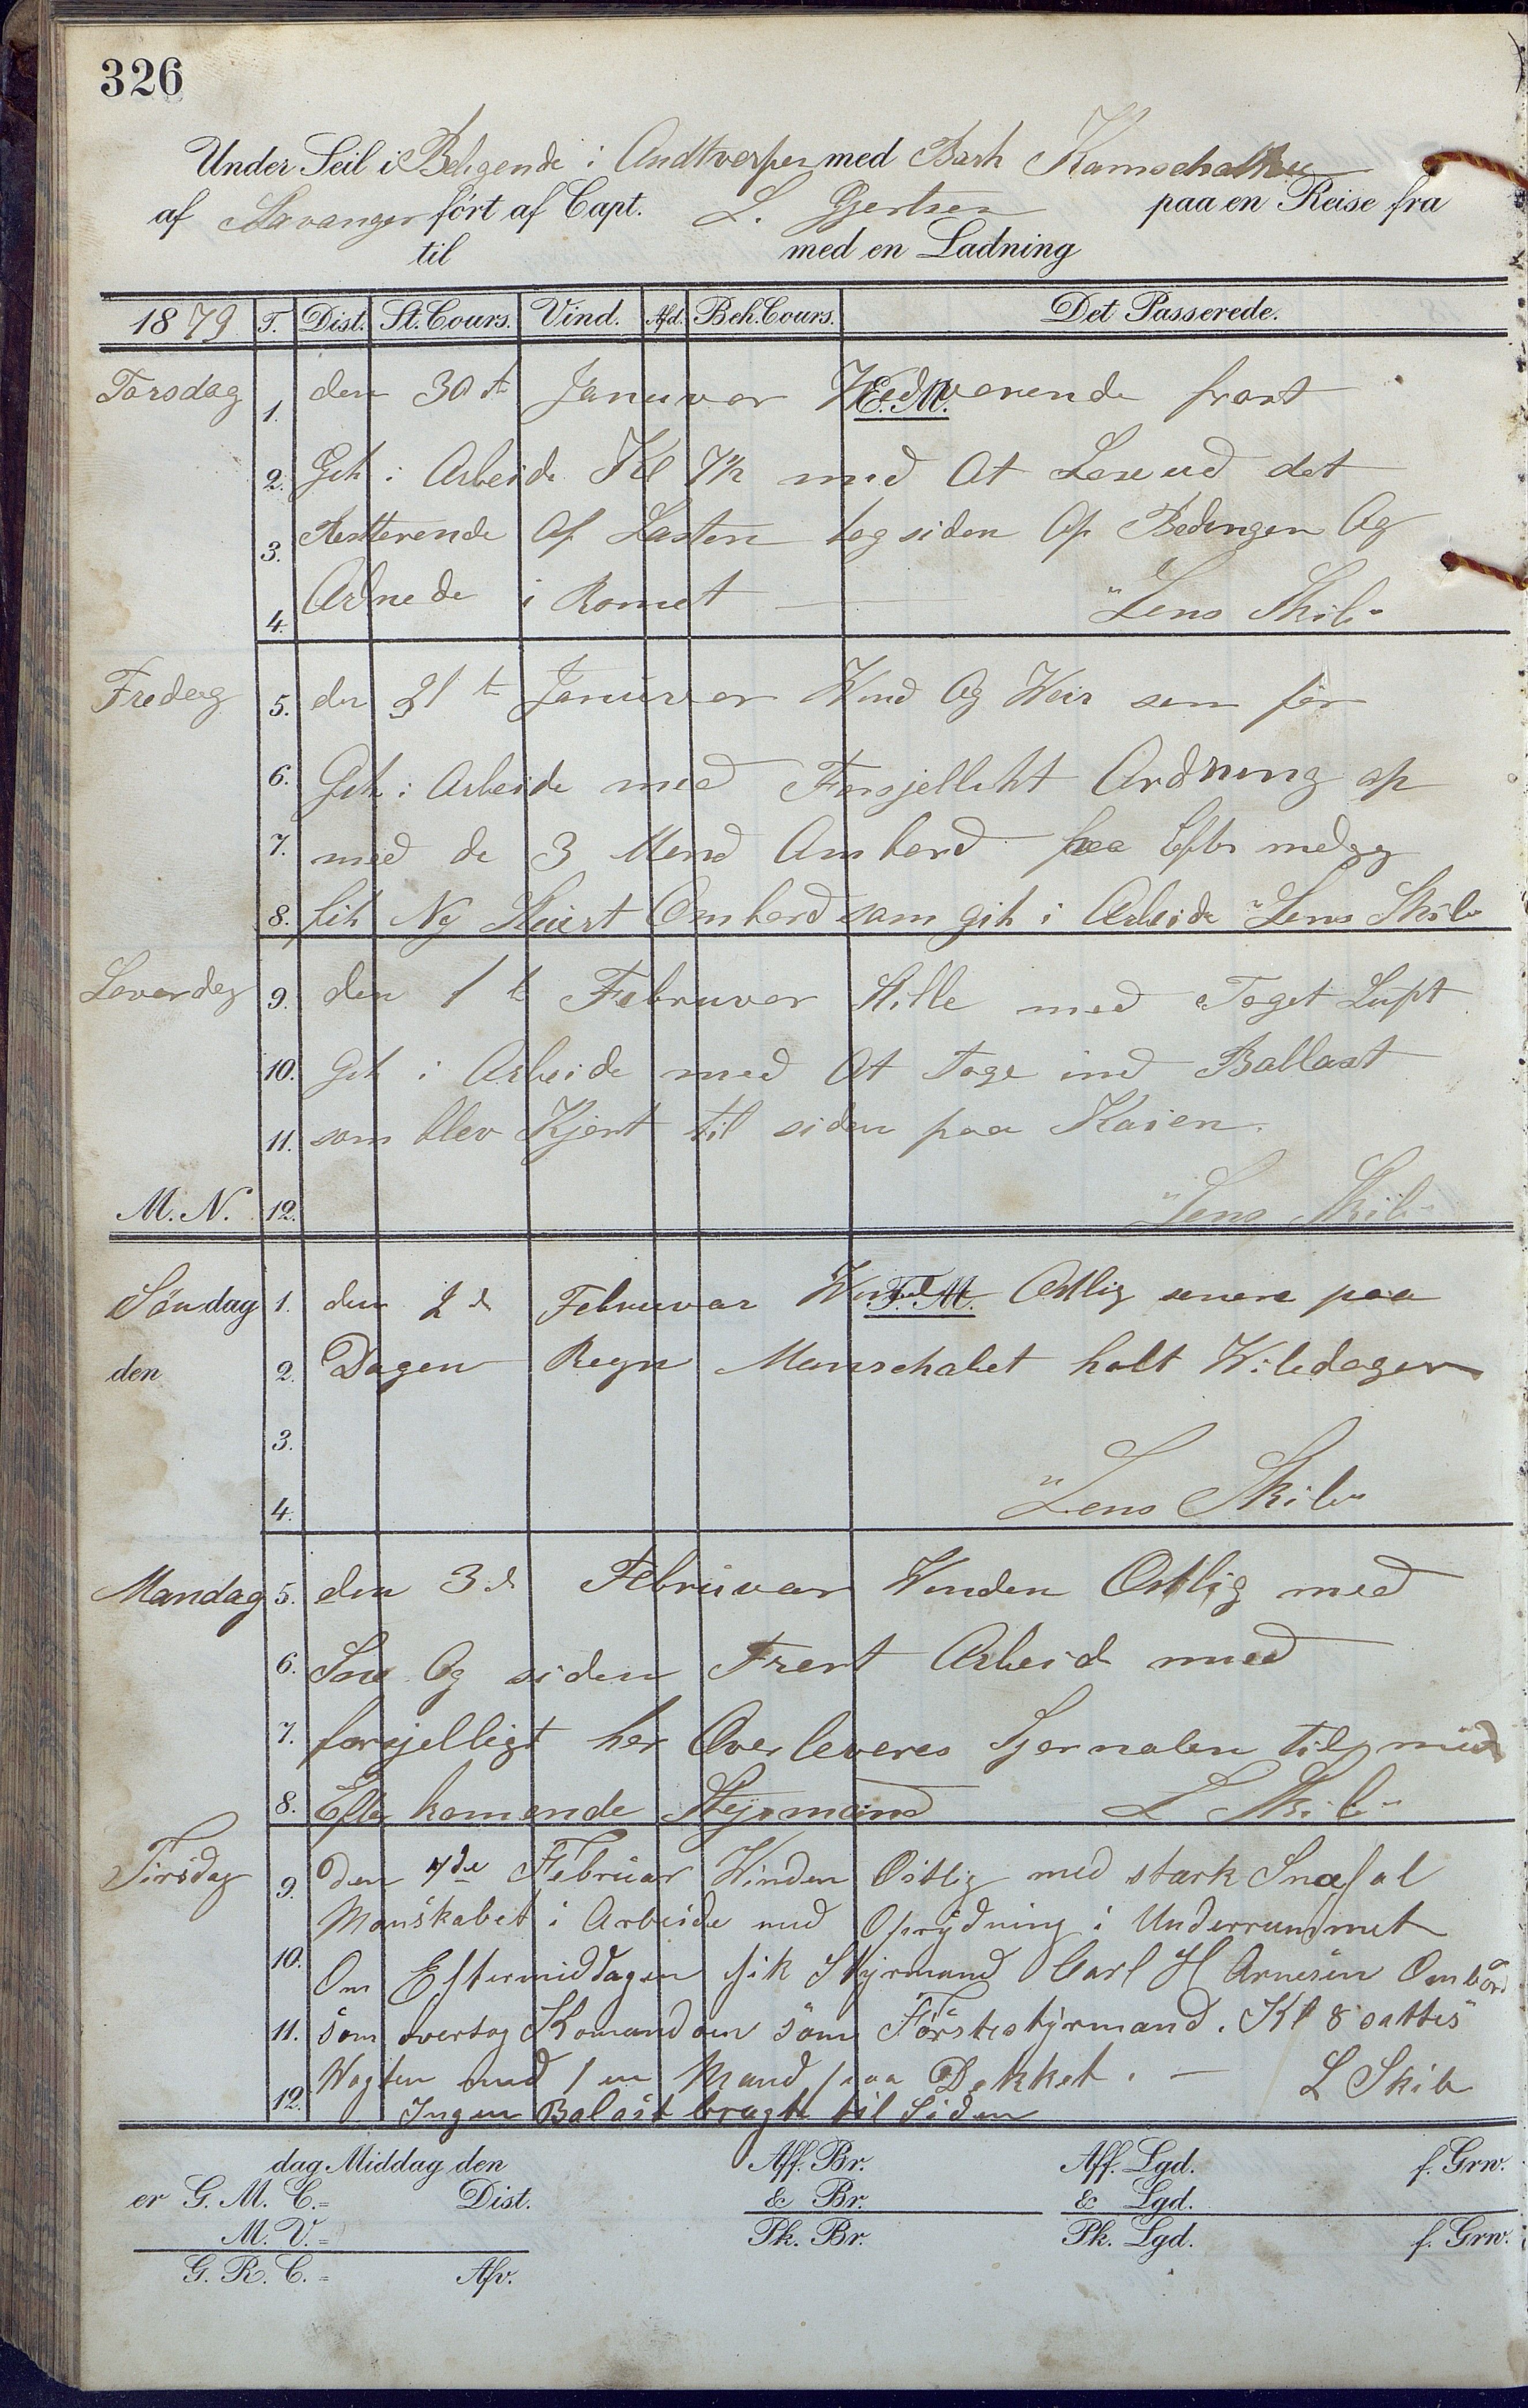 326
Under Seil i Beligende i Andtverpen med Bark Kamschatka
af Stavanger fórt af Capt. L. Gjertsen paa en Reise fra
til med en Ladning
1879 T. Dist. St. Cours. Vind. Afd. Beh. Cours. Det Passerede.
Torsdag 1. den 30t Januvar Vedvarende frost E.M.
2. Gik i Arbeide Kl 7½ med At Lose ud det
3. Resterende Af Lasten tog siden Op Bedingen Og
4. Adnede i Romet "Lens Skib"
Fredag 5. den 31t Januvar Wind Og Weir som før
6. Gik i Arbeide med Forsjelleht Ordning op
7. med de 3 Mend Om bord paa Efter medag
8. fik Ny Stuert Ombord som gik i Arbeide "Lens Skib"
Laverdag 9. den 1t Februvar Stille med Toget Luft
10. Gik i Arbeide med At Tage ind Ballast
11. som blev Kjørt til siden paa Kaien.
M. N. 12. "Lens Skib"
Søndag 1. den 2d Februvar Winden Østlig senere paa F.M.
den 2. Dagen Regn Manschabet holt Wiledagen
3.
4. "Lens Skib"
Mandag 5. den 3d Februvar Winden Østlig med
6. Sne Og siden Frost Arbeid med
7. forsjelligt her Over leveres Sjornalen til mid
8. Efter komende Styrmand L Skib"
Tirsdag 9. Den 4de Februar Winden Ostlig med stark Snefal
Manskabet i Arbeide med Oprydning i Underrummet
10. Om Eftermiddagen fik Styrmand Carl H Arnesen Ombord
11. som overtog Komandoen som Førstestyrmand. Kl 8 sattes
12. Wagten med 1 en Mand paa Dekket. — L Skib
Ingen Balast bragt til Siden
dag Middag den Aff. Br. Aff. Lgd. f. Grw.
er G. M. C. = Dist. & Br. & Lgd.
M. V. = Pk. Br. Pk. Lgd. f. Grw.
G. R. C. = Afv.